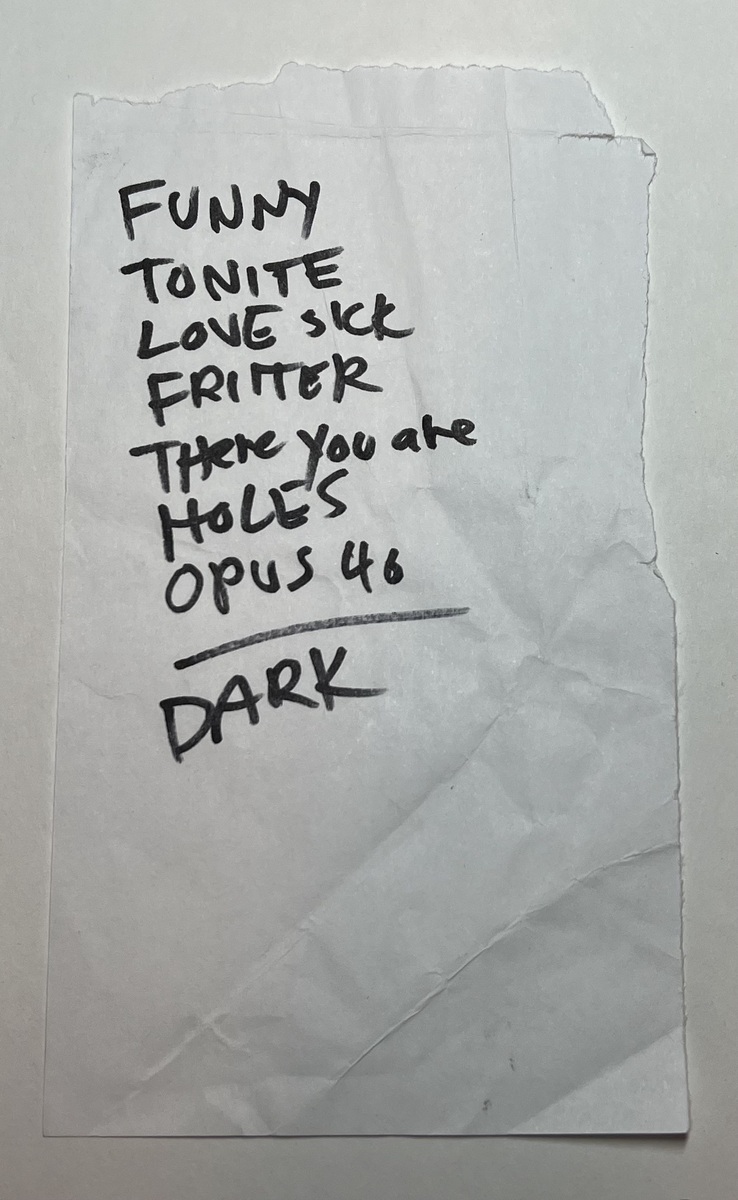 FUNNY
TONITE
LOVE SICK
FRITTER
THere You are
HOLES
OPUS 46
DARK